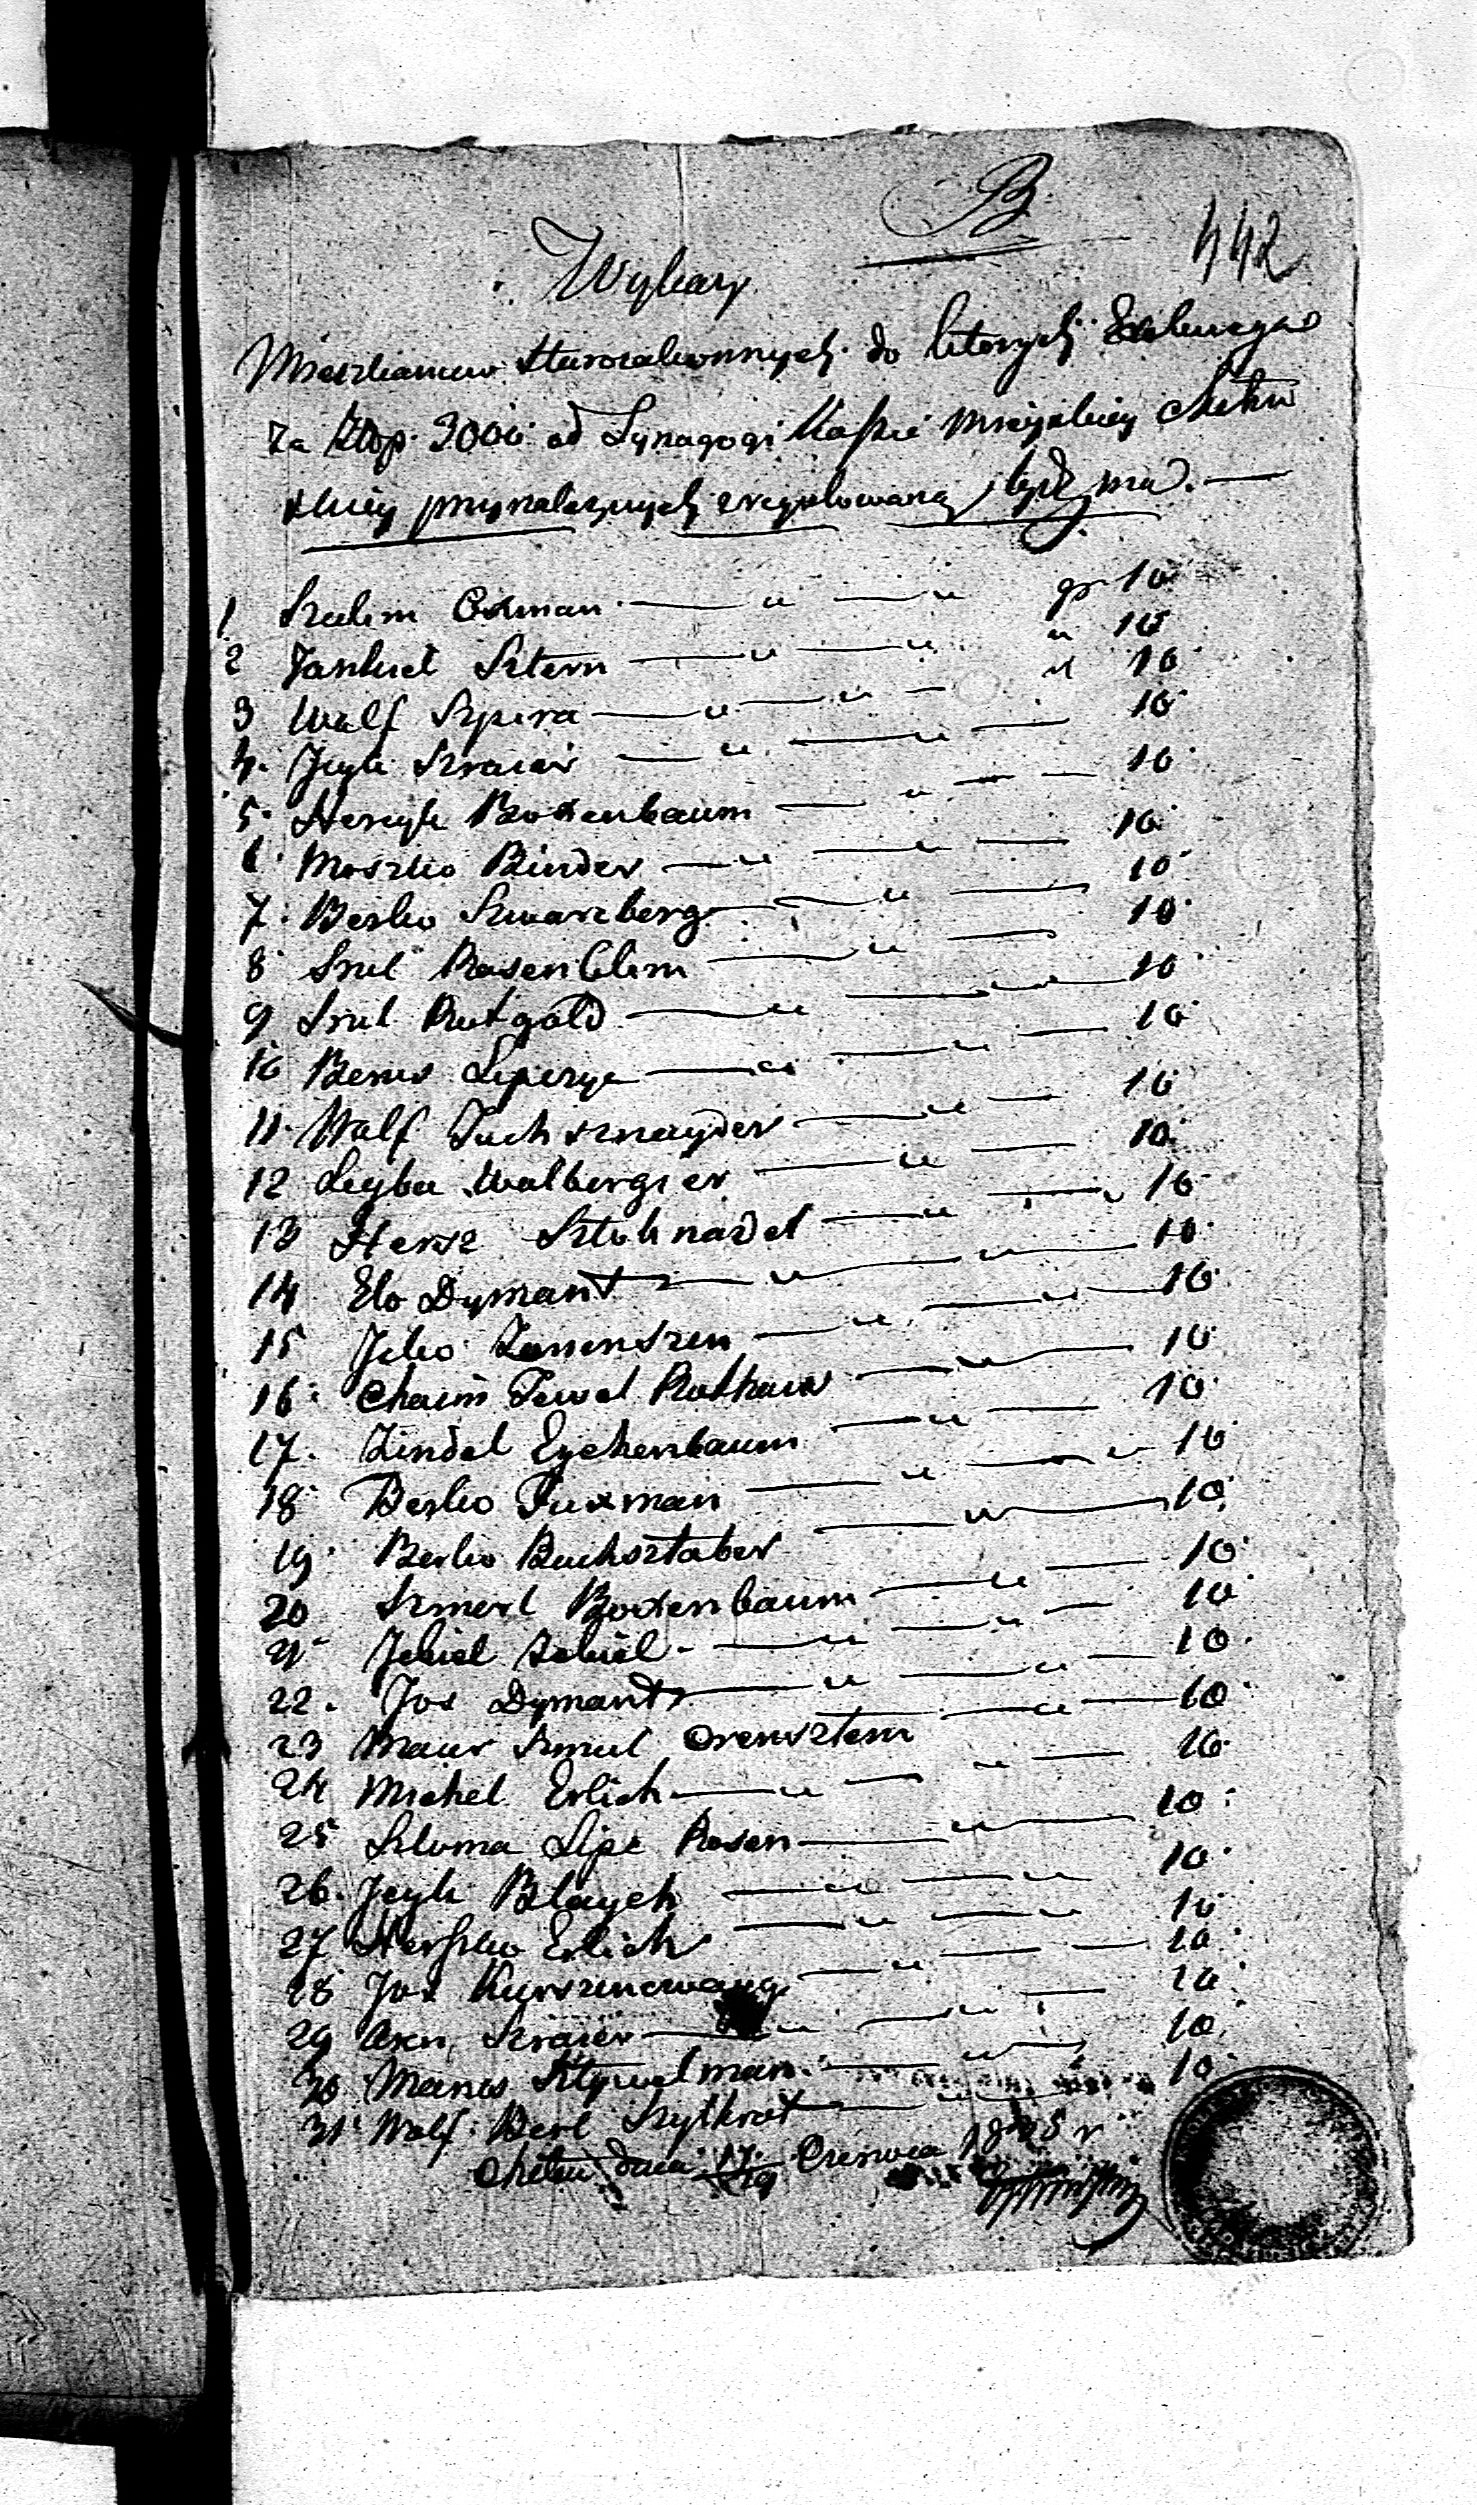 B
442
Wykaz
Mieszkanców Starozakonnych do których Exekucya
Za Złop. 3000 od Synagogi Kassie Mieyskiey Chełm
skiey przynależnych zregulowaną bydź ma.
1 Szulim Oxman — " — " gr 10
2 Jankiel Sztern — " — " " 10
3 Wulf Szpira — " — " — " 10
4. Jcyk Szraier — " — " — 10
5. Hersyk Boxenbaum — " — — 10
6. Moszko Binder — " — " — 10
7. Berko Szwarzberg — " — 10
8 Srul Rosenblum — " — 10
9 Srul Rutgold — " — " — 10
10 Beras Lipszyc — " — " — 10
11. Wolf Tuchsznayder — " — 10
12 Leyba Walbergier — " — 10
13 Hersz Sztoknadel — " — " 10
14 Elo Dymant — " — " — 10
15 Jcko Zonenszen — " — " — 10
16. Chaim Tewel Rothaux — " — 10
17. Zindel Eychenbaum — " — 10
18 Berko Fuxman — " — " — 10
19. Berko Buchsztaber — " — 10
20 Szmerl Boxenbaum — " — 10
21 Jekiel Sekiel — " — " — 10
22. Jos Dymant — " — " — 10
23 Maier Szmul Orensztein — " — 10
24 Michel Erlich — " — " — 10
25 Szloma Lipe Rosen — " — 10
26. Jcyk Blaych — " — " 10
27 Herszko Erlich — " — " 10
28 Jos Kurszencwayg — " — — 10
29 Szraier — " — " — 10
30 Manes Sztywelman — " — 10
31. Wolf Berl Szytkrot — " — 10
Chełm dnia 17/29 Czerwca 1845 r